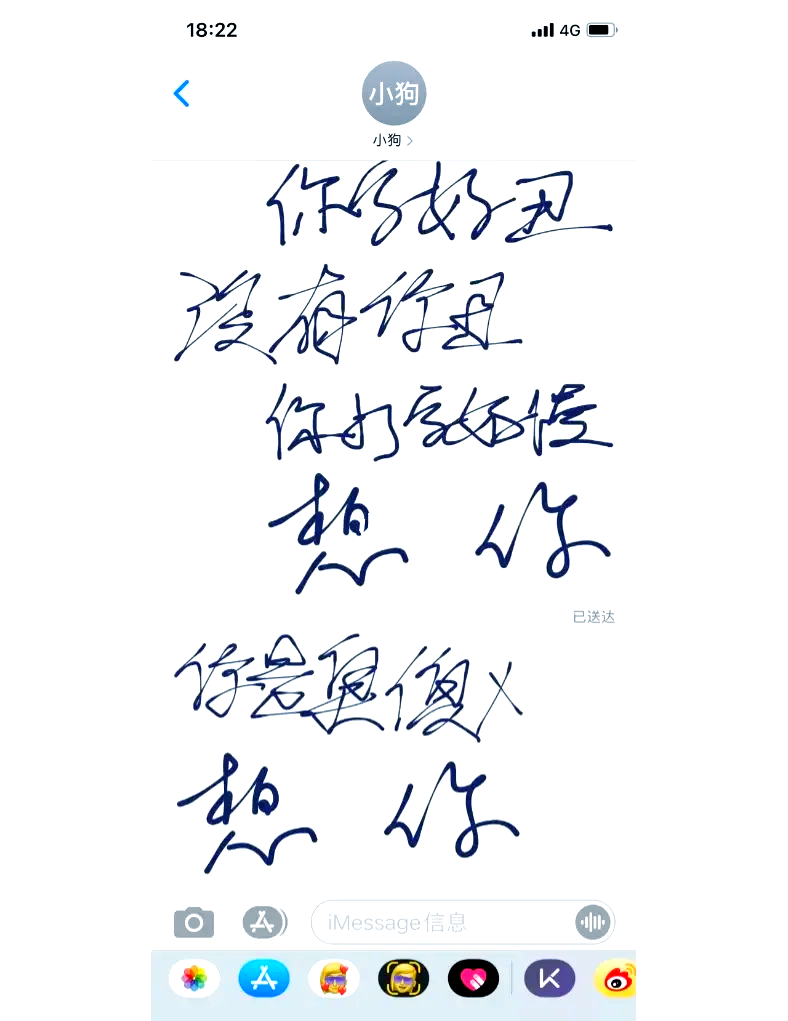 18:22
4G
小狗
小狗
你字好丑
没有你丑
你打字好慢
想 你
已送达
你是真傻X
想 你
iMessage信息